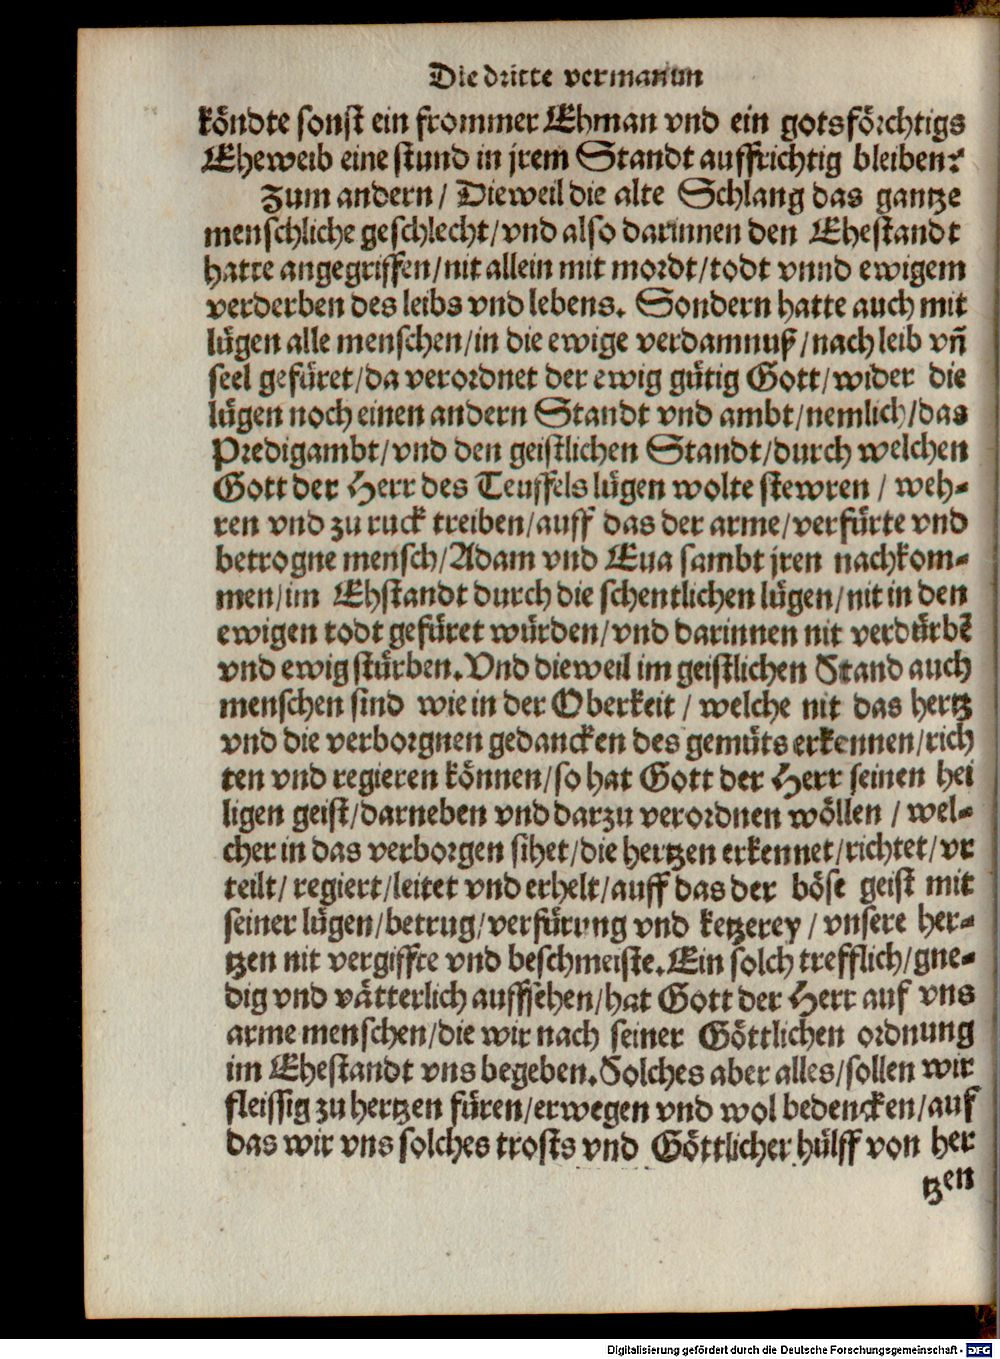 Die dritte vermanun
köndte sonst ein frommer Ehman vnd ein gotsförchtigs
Eheweib eine stund in jrem Standt auffrichtig bleiben?
Zum andern / Dieweil die alte Schlang das gantze
menschliche geschlecht / vnd also darinnen den Ehestandt
hatte angegriffen / nit allein mit mordt / todt vnnd ewigem
verderben des leibs vnd lebens. Sondern hatte auch mit
lügen alle menschen / in die ewige verdamnuß / nach leib vñ
seel gefüret / da verordnet der ewig gütig Gott / wider die
lügen noch einen andern Standt vnd ambt / nemlich / das
Predigambt / vnd den geistlichen Standt / durch welchen
Gott der Herr des Teuffels lügen wolte stewren / weh-
ren vnd zu ruck treiben / auff das der arme / verfürte vnd
betrogne mensch / Adam vnd Eua sambt jren nachkom-
men / im Ehstandt durch die schentlichen lügen / nit in den
ewigen todt gefüret würden / vnd darinnen nit verdürbẽ
vnd ewig stürben. Vnd dieweil im geistlichen Stand auch
menschen sind wie in der Oberkeit / welche nit das hertz
vnd die verborgnen gedancken des gemüts erkennen / rich
ten vnd regieren können / so hat Gott der Herr seinen hei
ligen geist / darneben vnd darzu verordnen wöllen / wel-
cher in das verborgen sihet / die hertzen erkennet / richtet / vr
teilt / regiert / leitet vnd erhelt / auff das der böse geist mit
seiner lügen / betrug / verfürung vnd ketzerey / vnsere her-
tzen nit vergiffte vnd beschmeiste. Ein solch trefflich / gne-
dig vnd vätterlich auffsehen / hat Gott der Herr auf vns
arme menschen / die wir nach seiner Göttlichen ordnung
im Ehestandt vns begeben. Solches aber alles / sollen wir
fleissig zu hertzen füren / erwegen vnd wol bedencken / auf
das wir vns solches trosts vnd Göttlicher hülff von her
tzen
Digitalisierung gefördert durch die Deutsche Forschungsgemeinschaft - DFG